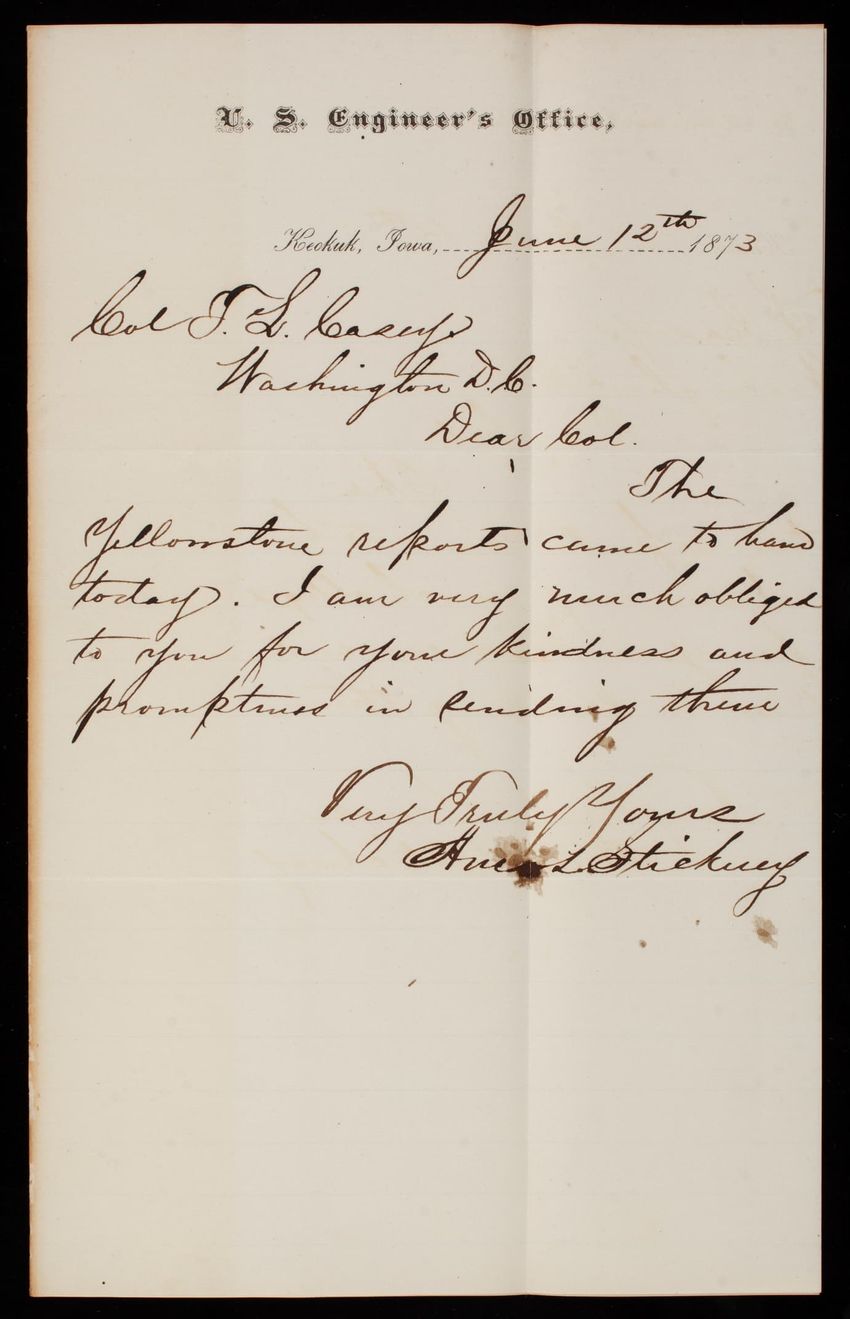 U. S. Engineer's Office,
Keokuk, Iowa, June 12th 1873
Col T. L. Casey
Washington D. C.
Dear Col.
The
Yellowstone reports came to hand
today. I am very much obliged
to you for your kindness and
promptness in sending them
Very Truly Yours
Amos Stickney